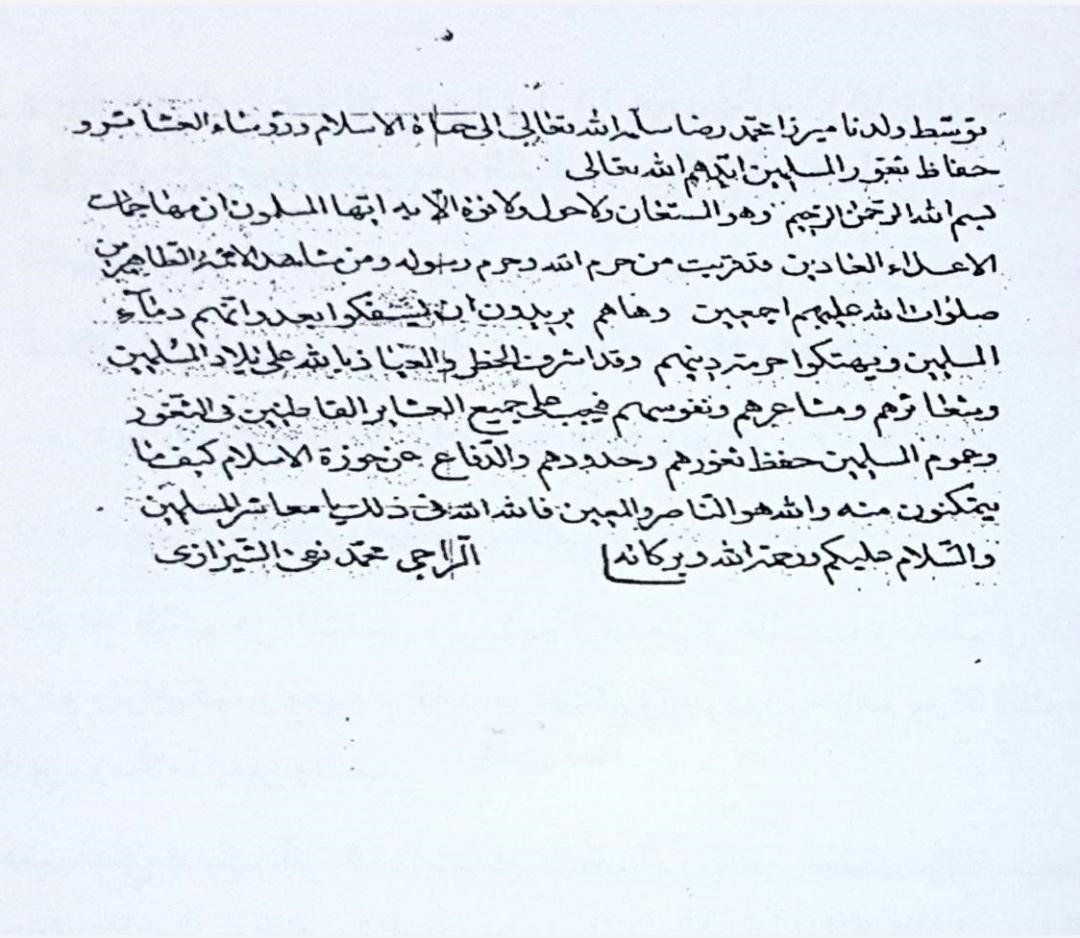 بتوسط ولدنا ميرزا محمد رضا سلمه الله تعالى الى حماة الاسلام ورؤساء العشائر و
حفاظ ثغور المسلمين ايدهم الله تعالى
بسم الله الرحمن الرحيم وهو المستعان ولا حول ولا قوة الا به ايها المسلمون ان مهاجمات
الاعداء العادين قد قربت من حرم الله وحرم رسوله ومن مشاهد الائمة الطاهرين
صلوات الله عليهم اجمعين وها هم يريدون ان يسفكوا بعدوانهم دماء
المسلمين ويهتكوا حرمة دينهم وقد اشرف الخطر والعياذ بالله على بلاد المسلمين
وشعائرهم ومشاعرهم ونفوسهم فيجب على جميع العشاير القاطنين فى الثغور
وعموم المسلمين حفظ ثغورهم وحدودهم والدفاع عن حوزة الاسلام كيف ما
يتمكنون منه والله هو الناصر والمعين فالله الله فى ذلك يا معاشر المسلمين
والسلام عليكم ورحمة الله وبركاته الراجي محمد تقى الشيرازى